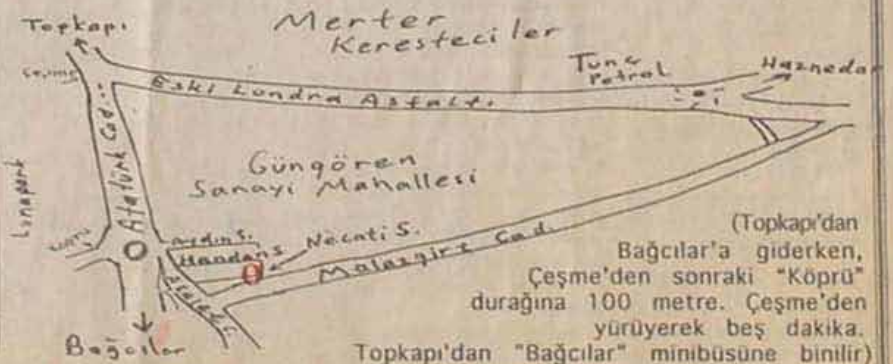 Topkapı
Merter
Keresteciler
Çeşme
Eski Londra Asfaltı
Tunç
Petrol
Haznedar
Atatürk Cad.
Lunapark
Güngören
Sanayi Mahallesi
Aydın S.
Handan S
Necati S.
Malazgirt Cad.
Bağcılar
(Topkapı'dan
Bağcılar'a giderken,
Çeşme'den sonraki "Köprü"
durağına 100 metre. Çeşme'den
yürüyerek beş dakika.
Topkapı'dan "Bağcılar" minibüsüne binilir)